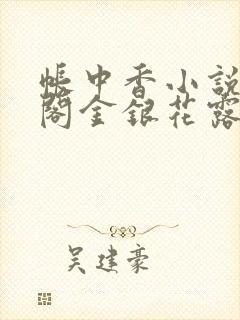 帳中香小說
閣金銀花露
吴建豪